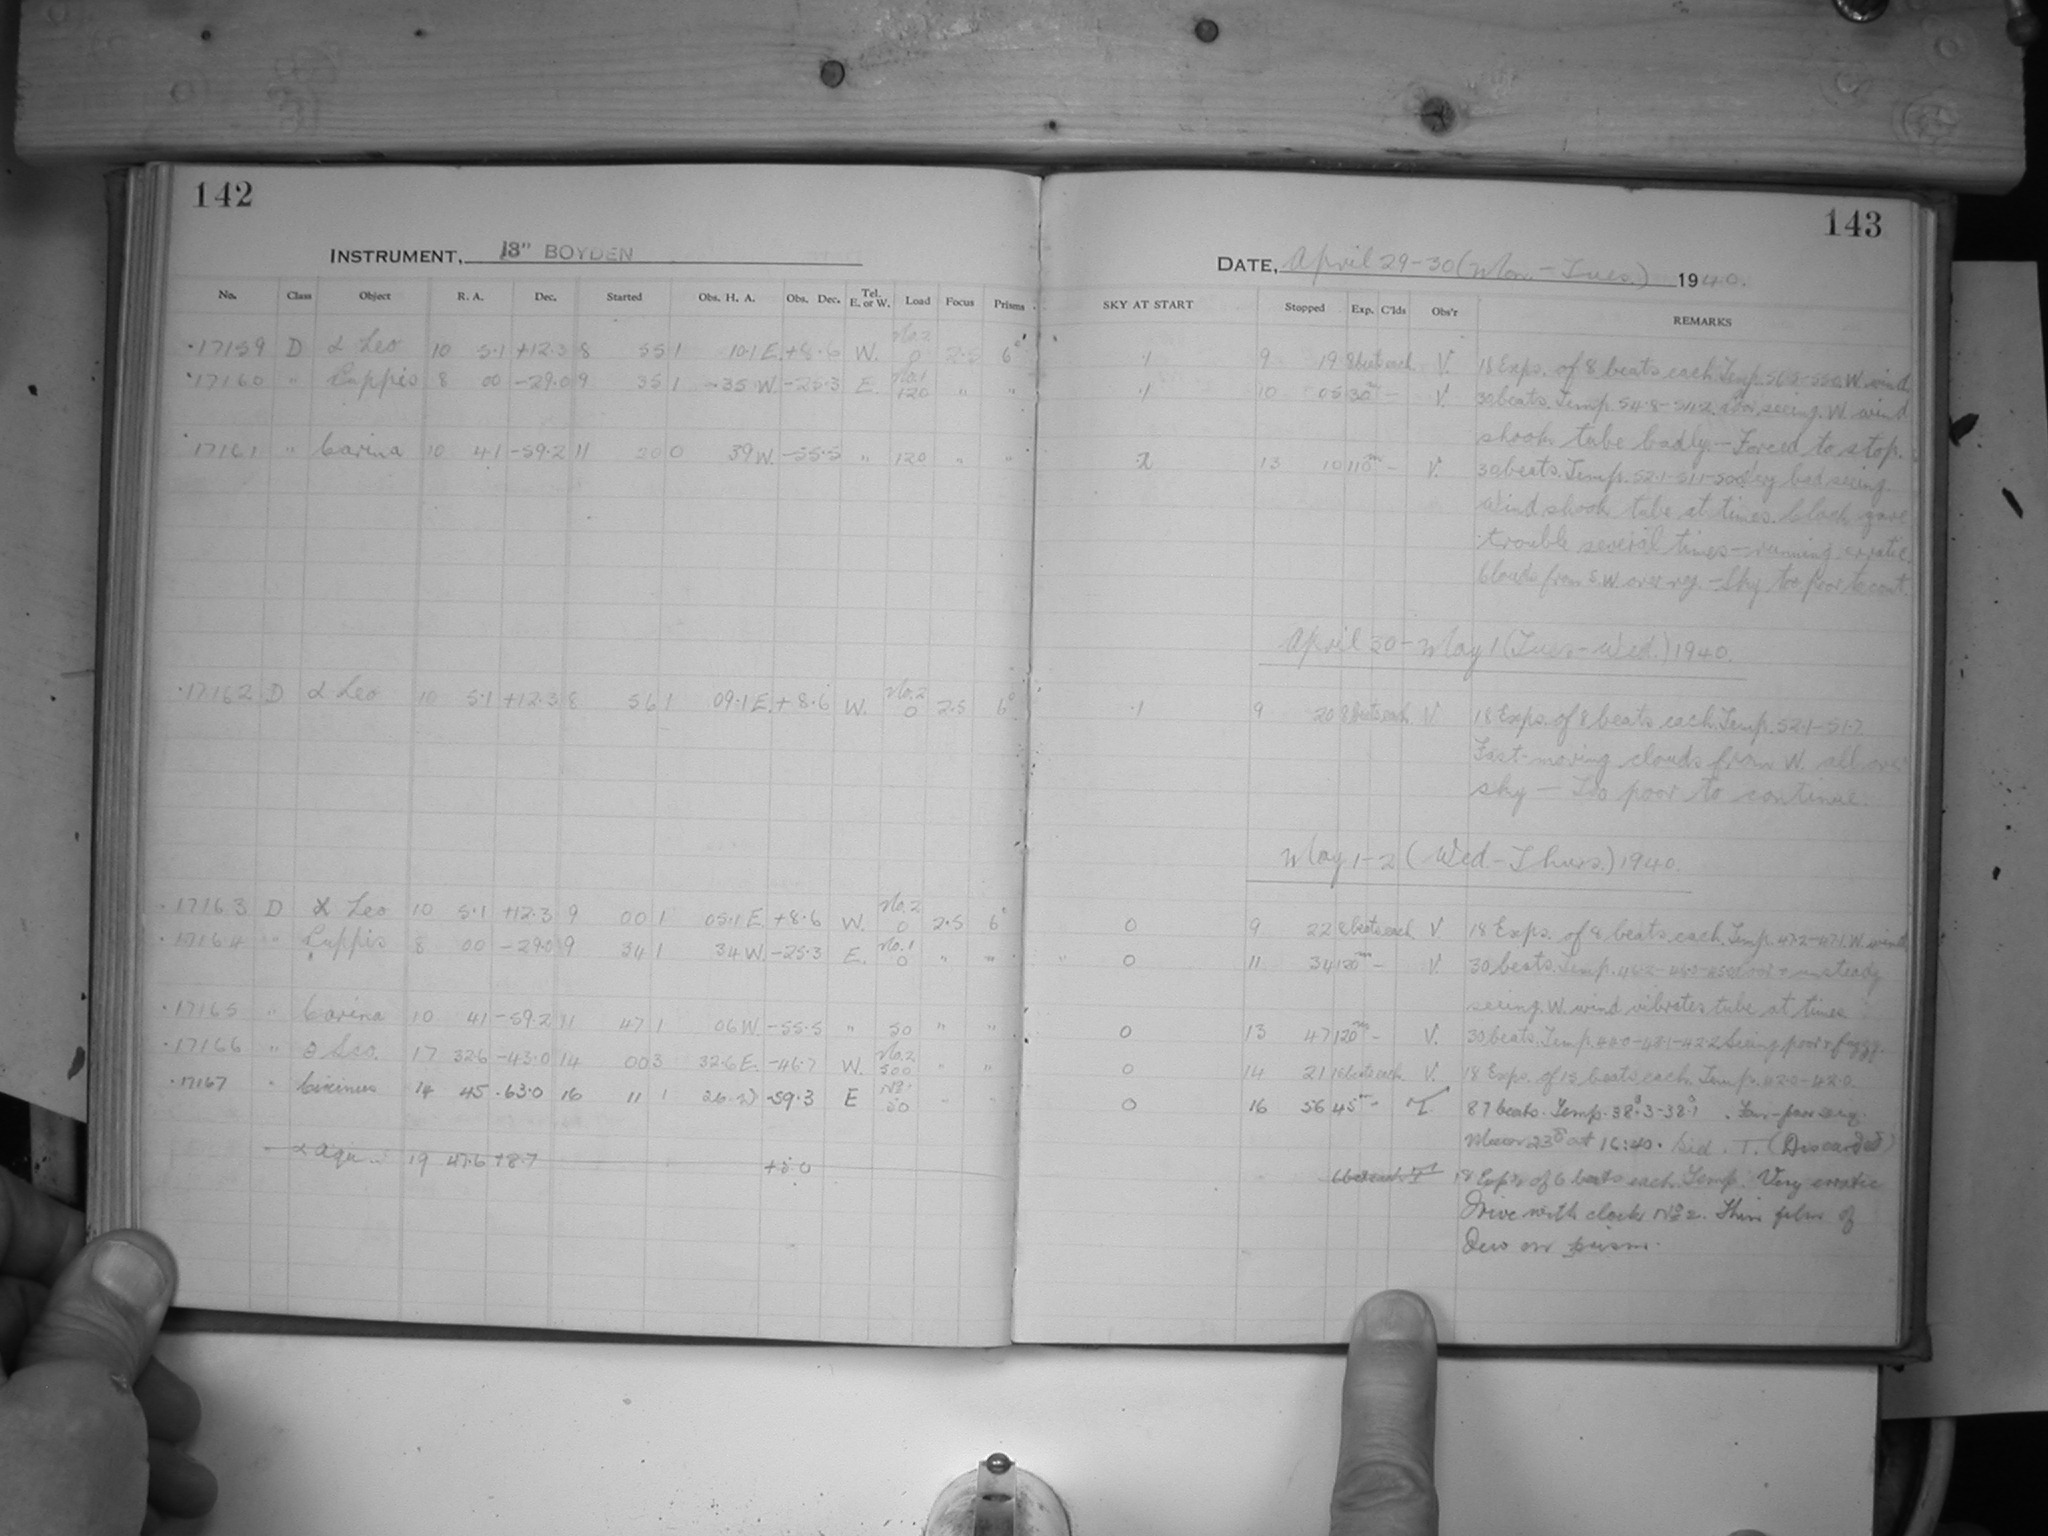 142
INSTRUMENT, 13" BOYDEN
No. Class Object R. A. Dec. Started Obs. H. A. Obs. Dec. Tel. E. or W. Load Focus Prisms
17159 D α Leo 10 5.1 +12.3 8 55 1 10.1 E. +8.6 W. No.2 0 2.5 6°
17160 " Puppis 8 00 -29.0 9 35 1 35 W. -25.3 E. No.1 120 " "
17161 " Carina 10 41 -59.2 11 20 0 39 W. -55.5 " 120 " "
17162 D α Leo 10 5.1 +12.3 8 56 1 09.1 E. +8.6 W. No.2 0 2.5 6°
17163 D α Leo 10 5.1 +12.3 9 00 1 05.1 E. +8.6 W. No.2 0 2.5 6°
17164 " Puppis 8 00 -29.0 9 34 1 34 W. -25.3 E. No.1 0 " "
17165 " Carina 10 41 -59.2 11 47 1 06 W. -55.5 " 50 " "
17166 " θ Sco. 17 32.6 -43.0 14 00 3 32.6 E. -46.7 W. No.2 500 " "
17167 " Circinus 14 45 -63.0 16 11 1 26 W -59.3 E No. 50 " "
α Aqu 19 47.6 +8.7 +5.0
143
DATE, April 29-30 (Mon.-Tues.) 1940.
SKY AT START Stopped Exp. C'lds Obs'r REMARKS
.1 9 19 8 beats each V. 18 Exps. of 8 beats each. Temp. W. wind
.1 10 05 30m - V. 30 beats. Temp. 54.8- Poor seeing. W. wind
shook tube badly - Forced to stop.
.2 13 10 110m - V. 30 beats. Temp. 52.1-51.1- Very bad seeing
wind shook tube at times. Clock gave
trouble several times - running erratic.
Clouds from S.W. over reg. - Sky too poor to cont.
April 30 - May 1 (Tues-Wed.) 1940.
.1 9 20 8 beats each V. 18 Exps. of 8 beats each. Temp. 52.1-51.7
Fast-moving clouds from W. all over
sky - Too poor to continue.
May 1-2 (Wed.-Thurs.) 1940.
0 9 22 8 beats each V 18 Exps. of 8 beats each. Temp. 47.2-47.1. W. wind
0 11 34 120m - V. 30 beats. Temp. 46.2- Poor & unsteady
seeing. W. wind vibrates tube at times
0 13 47 120m - V. 30 beats. Temp. Seeing poor & fuzzy.
0 14 21 15 beats each V. 18 Exps. of 15 beats each. Temp. 42.0-42.0
0 16 56 45m - T 87 beats. Temp. 38.3-38.1. Fair-poor seeing.
Moon at 16:40. Sid. T. (Discarded)
6 beats each T 18 Exps of 6 beats each. Temp. Very erratic
Drive with clock No 2. Thin film of
Dew on prism.